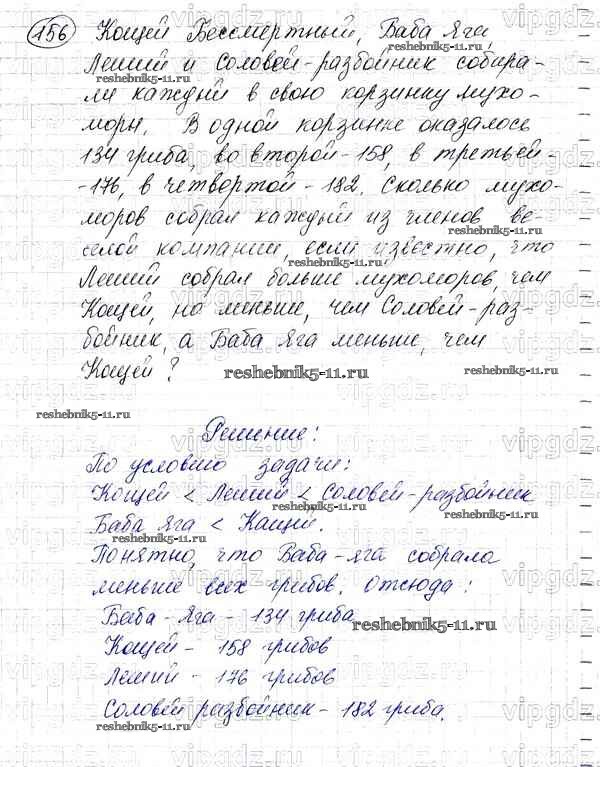 156 Кощей Бессмертный, Баба Яга,
Леший и Соловей-разбойник собира-
ли каждый в свою корзинку мухо-
моры. В одной корзинке оказалось
134 гриба, во второй-158, в третьей-
-176, в четвертой-182. Сколько мухо-
моров собрал каждый из членов ве-
селой компании, если известно, что
Леший собрал больше мухоморов, чем
Кощей, но меньше, чем Соловей-раз-
бойник, а Баба Яга меньше, чем
Кощей?
reshebnik5-11.ru
Решение:
По условию задачи:
Кощей < Леший < Соловей-разбойник
Баба Яга < Кащей.
Понятно, что Баба-яга собрала
меньше всех грибов. Отсюда:
Баба-Яга - 134 гриба
Кощей - 158 грибов
Леший - 176 грибов
Соловей разбойник - 182 гриба.
reshebnik5-11.ru
vipgdz.ru